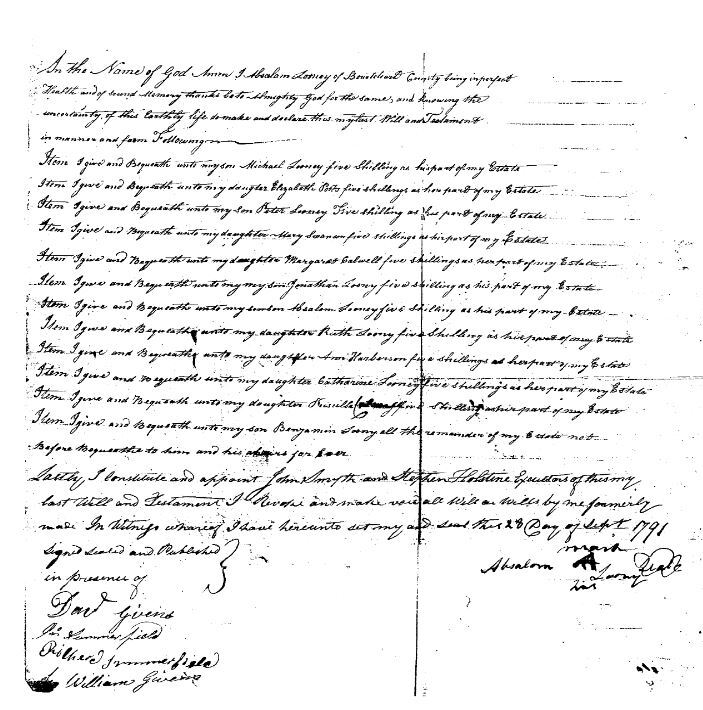 In the Name of God Amen I Absalom Looney of Bourdinard County being in perfect
Health and of sound Memory thanks be to Almighty God for the same, and knowing the
uncertainty of this Earthtly life do make and declare this my last Will and Testament
in manner and form Following
Item I give and Bequeath unto my son Michael Looney five Shilling as his part of my Estate
Item I give and Bequeath unto my daugter Elizabeth five shillings as her part of my Estate
Item I give and Bequeath unto my son Peter Looney Five shilling as his part of my Estate
Item I give and Bequeath unto my daughter Mary five shillings as his part of my Estate
Item I give and Bequeath unto my daughter Margaret Calwell five shillings as her part of my Estate
Item I give and Bequeath unto my my son Jonathan Loony five shilling as his part of my Estate
Item I give and Bequeath unto my son son Absalom Loony five shilling as his part of my Estate
Item I give and Bequeath unto my daughter Ruth Loony five Shilling as his part of my Estate
Item I give and Bequeath unto my daughter Ann Harberson five shillings as her part of my Estate
Item I give and Bequeath unto my daughter Catharine Looney five shillings as her part of my Estate
Item I give and Bequeath unto my daughter Priscilla five Shilling as her part of my Estate
Item I give and Bequeath unto my son Benjamin Loony all the remander of my Estate not
Before Bequeathe to him and his for Ever
Lastly, I constitute and appoint John Smyth and Stephen Holstine Executors of this my
last Will and Testament I Revoke and make void all Will or Wills by me formerly
made In Witness whareof I have hereunto set my and seal this 28 Day of Sept 1791
signed sealed and Published
in presence of
mark
Absalom A Loony Seale
his
Davd Givens
Jas Summerfield
Richerd Summerfield
William Givens